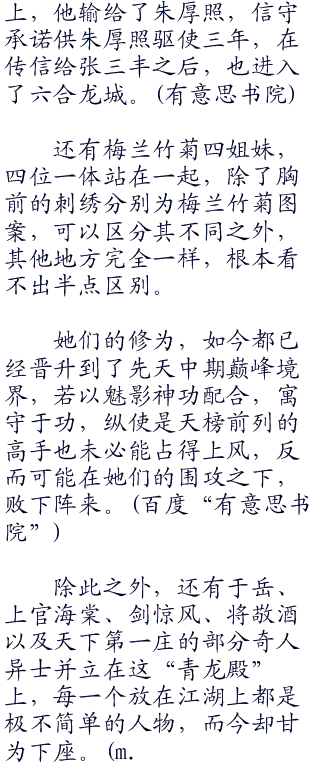 上，他输给了朱厚照，信守
承诺供朱厚照驱使三年，在
传信给张三丰之后，也进入
了六合龙城。(有意思书院)
还有梅兰竹菊四姐妹，
四位一体站在一起，除了胸
前的刺绣分别为梅兰竹菊图
案，可以区分其不同之外，
其他地方完全一样，根本看
不出半点区别。
她们的修为，如今都已
经晋升到了先天中期巅峰境
界，若以魅影神功配合，寓
守于功，纵使是天榜前列的
高手也未必能占得上风，反
而可能在她们的围攻之下，
败下阵来。(百度“有意思书
院”)
除此之外，还有于岳、
上官海棠、剑惊风、将敬酒
以及天下第一庄的部分奇人
异士并立在这“青龙殿”
上，每一个放在江湖上都是
极不简单的人物，而今却甘
为下座。(m.